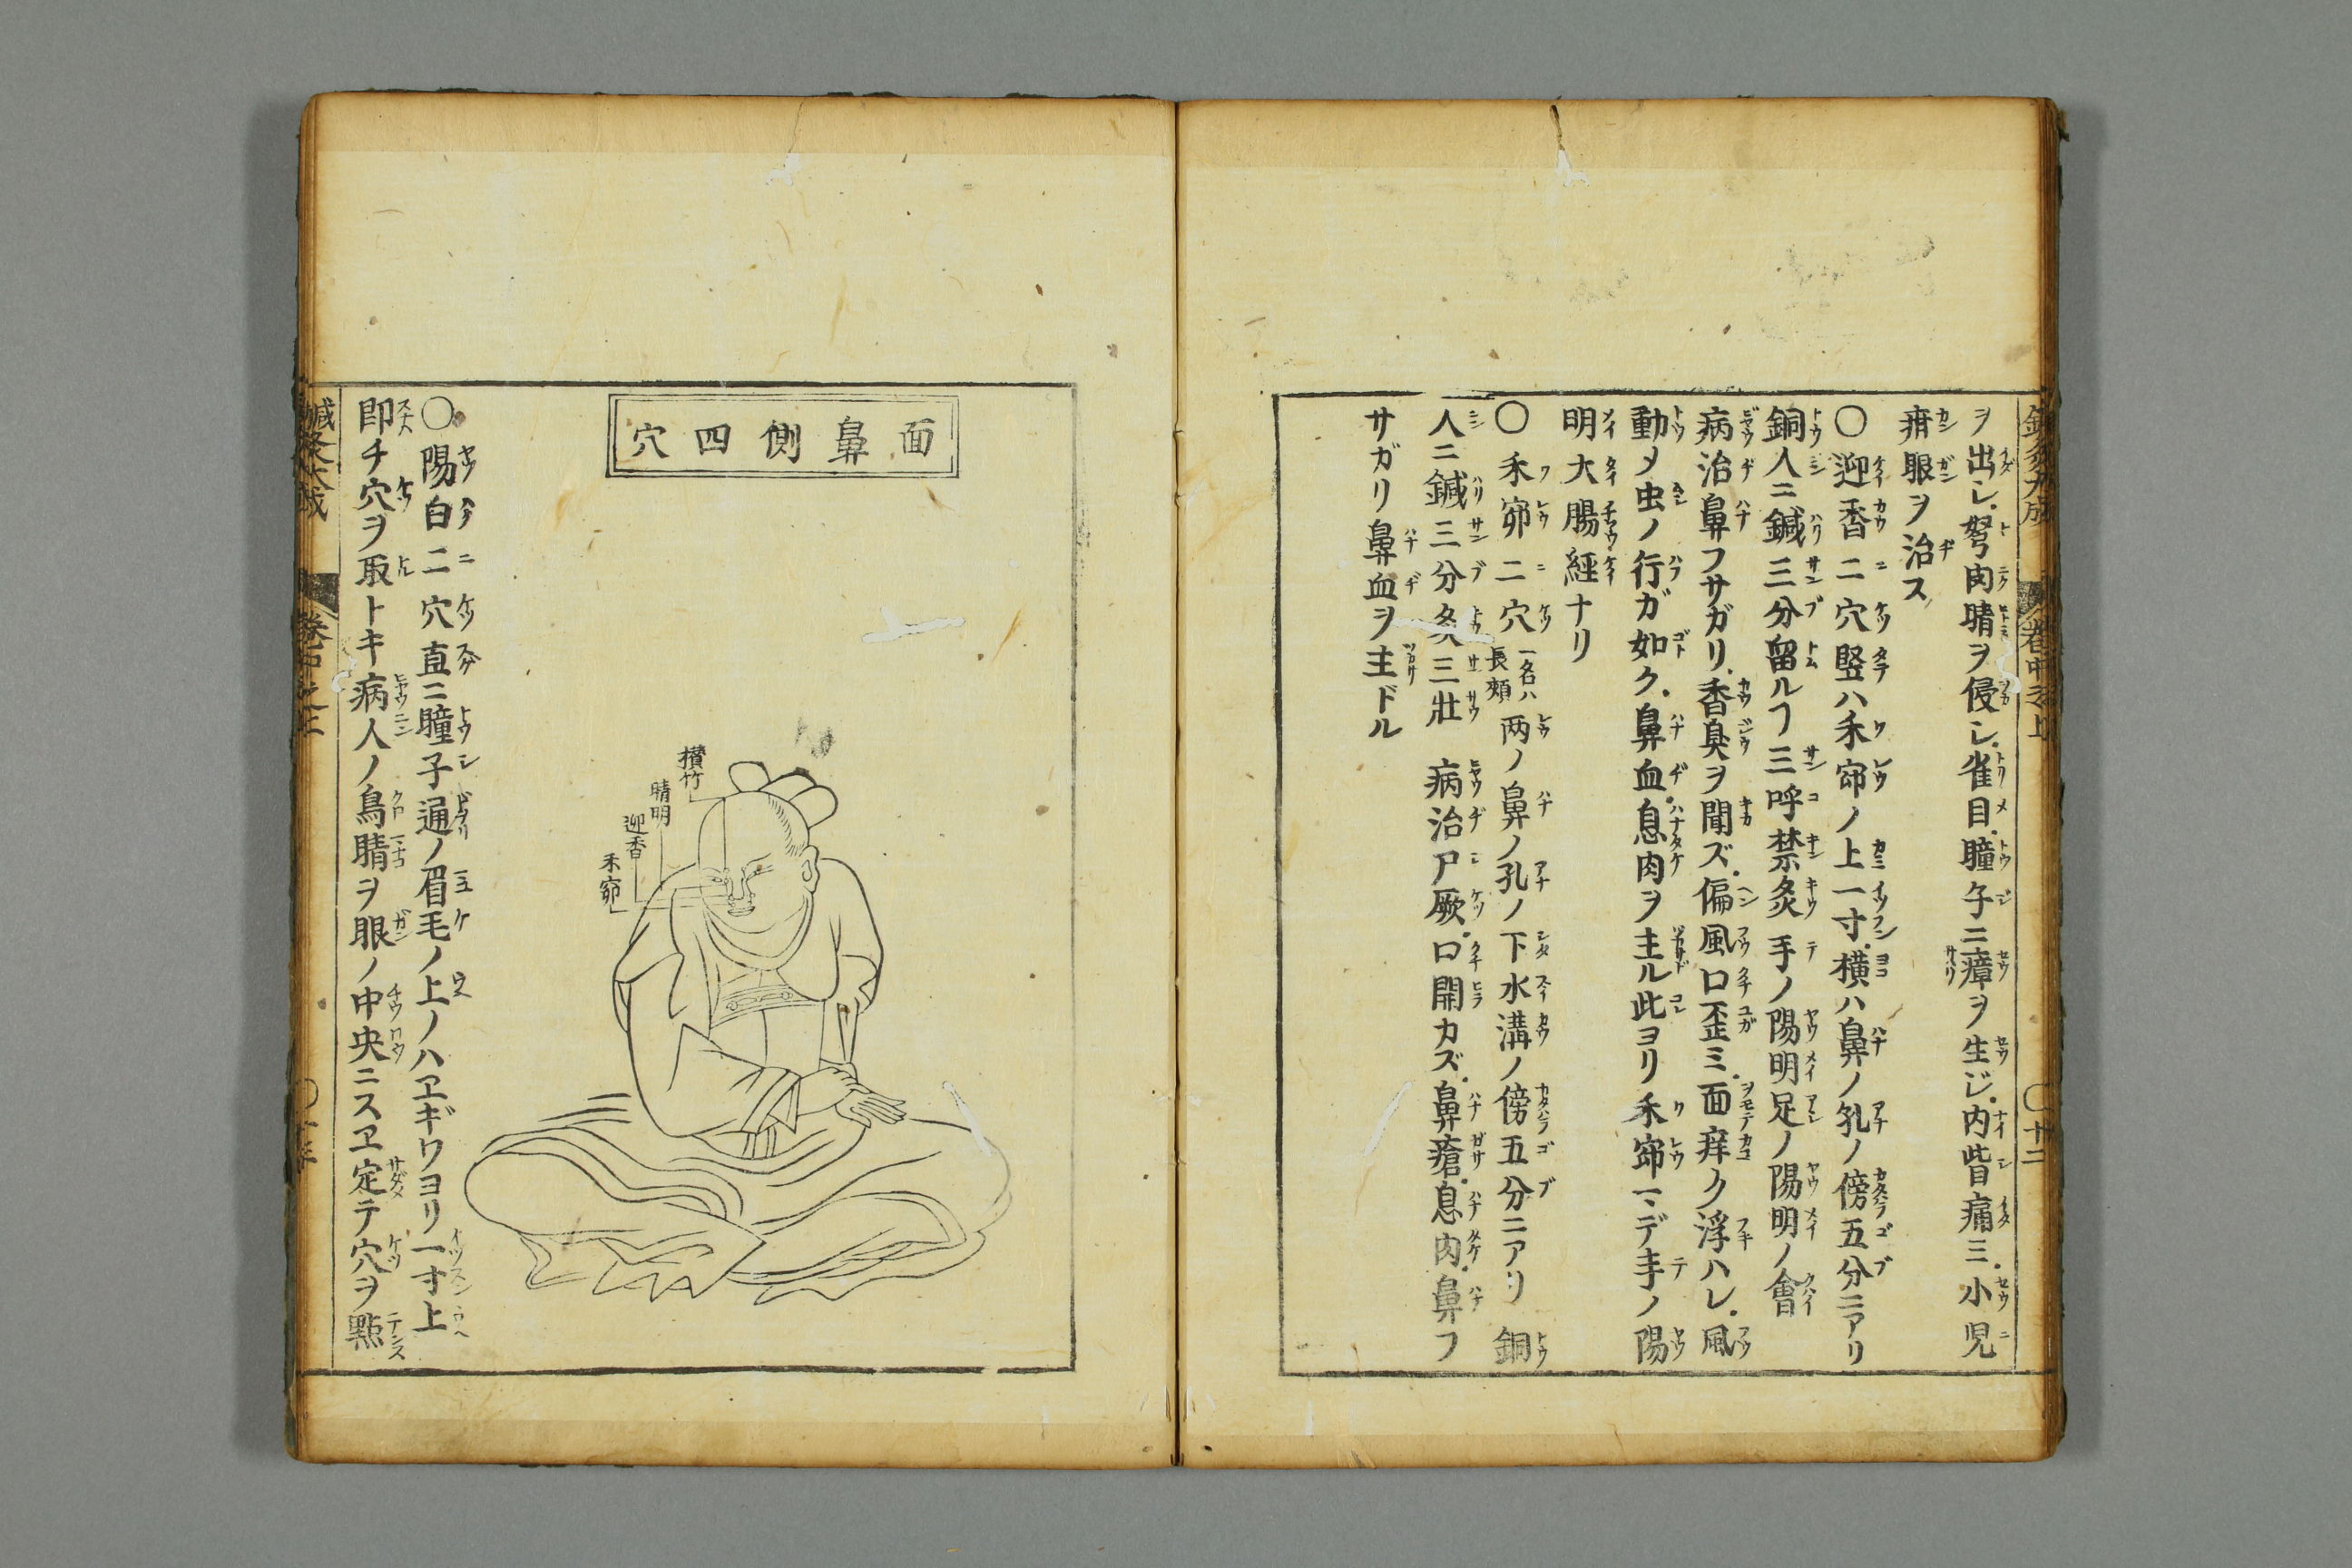 ヲ出シ.弩肉睛ヲ侵シ.雀目.瞳子ニ瘴ヲ生ジ.内眥痛ミ.小児
疳眼ヲ治ス
〇迎香二穴竪ハ禾窌ノ上一寸.横ハ鼻ノ孔ノ傍五分ニアリ
銅人ニ鍼三分留ルヿ三呼禁灸 手ノ陽明足ノ陽明ノ會
病治鼻フサガリ.香臭ヲ聞ズ.偏風口歪ミ.面痒ク浮ハレ.風
動メ虫ノ行ガ如ク.鼻血.息肉ヲ主ル此ヨリ禾窌マデ手ノ陽
明大腸經ナリ
〇禾窌二穴 一名ハ長頻 两ノ鼻ノ孔ノ下水溝ノ傍五分ニアリ 銅
人ニ鍼三分灸三壯 病治尸厥.口開カズ.鼻瘡.息肉.鼻フ
サガリ鼻血ヲ主ドル
卷中之上
〇十二
面鼻側四穴
攢竹
睛明
迎香
禾窌
〇陽白二穴直ニ瞳子通ノ眉毛ノ上ノハヱギワヨリ一寸上
即チ穴ヲ取トキ病人ノ烏睛ヲ眼ノ中央ニスヱ定テ穴ヲ點